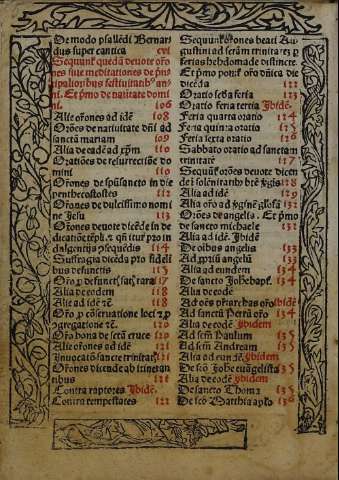 De modo psallēdi Bernar
dus super cantica cvi
Sequūt̄ quedā deuote orō
nes siue meditationes de prin
cipalioribus festiuitatib' an
ni. Et prīmo de natiuitate domi
ni. 106
Alie orōnes ad idē 108
Orōes de natiuitate dn̄i ad
sanctā mariam 109
Alia de eadē ad xp̄m 110
Oratiōes de resurrectiōe do
mini 110
Orōnes de sp̄usancto in die
penthecostes 112
Orōnes de dulcissimo nomi
ne Jesu 113
Orōnes deuote dicēde in de
dicatiōe tēpli
114
Suffragia dicēda pro fideli
bus defunctis 115
117
Alia de eodem 118
Alia ad idē 118
120
Orō bona de sctā cruce 120
Alie orōnes ad idē 121
Inuocatō sancte trinitatis 121
Orōnes dicende ab itineran
tibus 121
Contra raptores Ibidē.
Contra tempestates 122
Sequūt̄ orōnes beati Au
gustini ad sctām trinitatē p
ferias hebdomade distincte.
Et prīmo orō dn̄ica die
dicēda 122
Oratio scđa feria 123
Oratio feria tertia Ibidē.
Feria quarta oratio 124
Feria quinta oratio 125
Feria sexta oratio 126
Sabbato oratio ad sanctam
trinitatē 127
Sequūt̄ orōes deuote dicen
de ī solēnitatib' 128
Alia ad idē 129
Alia orō ad v̄ginē gl'osā 132
Orōes de angelis. Et prīmo
de sancto michaele 132
Alia ad idē. Ibidē
De oībus angelis 133
Ad xprīū angelū 133
Alia ad eundem 134
De sancto Johēbapt. 134
Alia de eodē
Ad oēs p̄triarchas orō Ibidē
Ad sanctū Petrū orō 134
Alia de eodē Ibidem
Ad sctm̄ Paulum 135
Ad sctm̄ Andream 135
Alia ad eundē Ibidem
De sctō Johē euāgelista 135
Alia de eodē Ibidem
De sancto Thoma 135
De sctō Matthia aplō 136